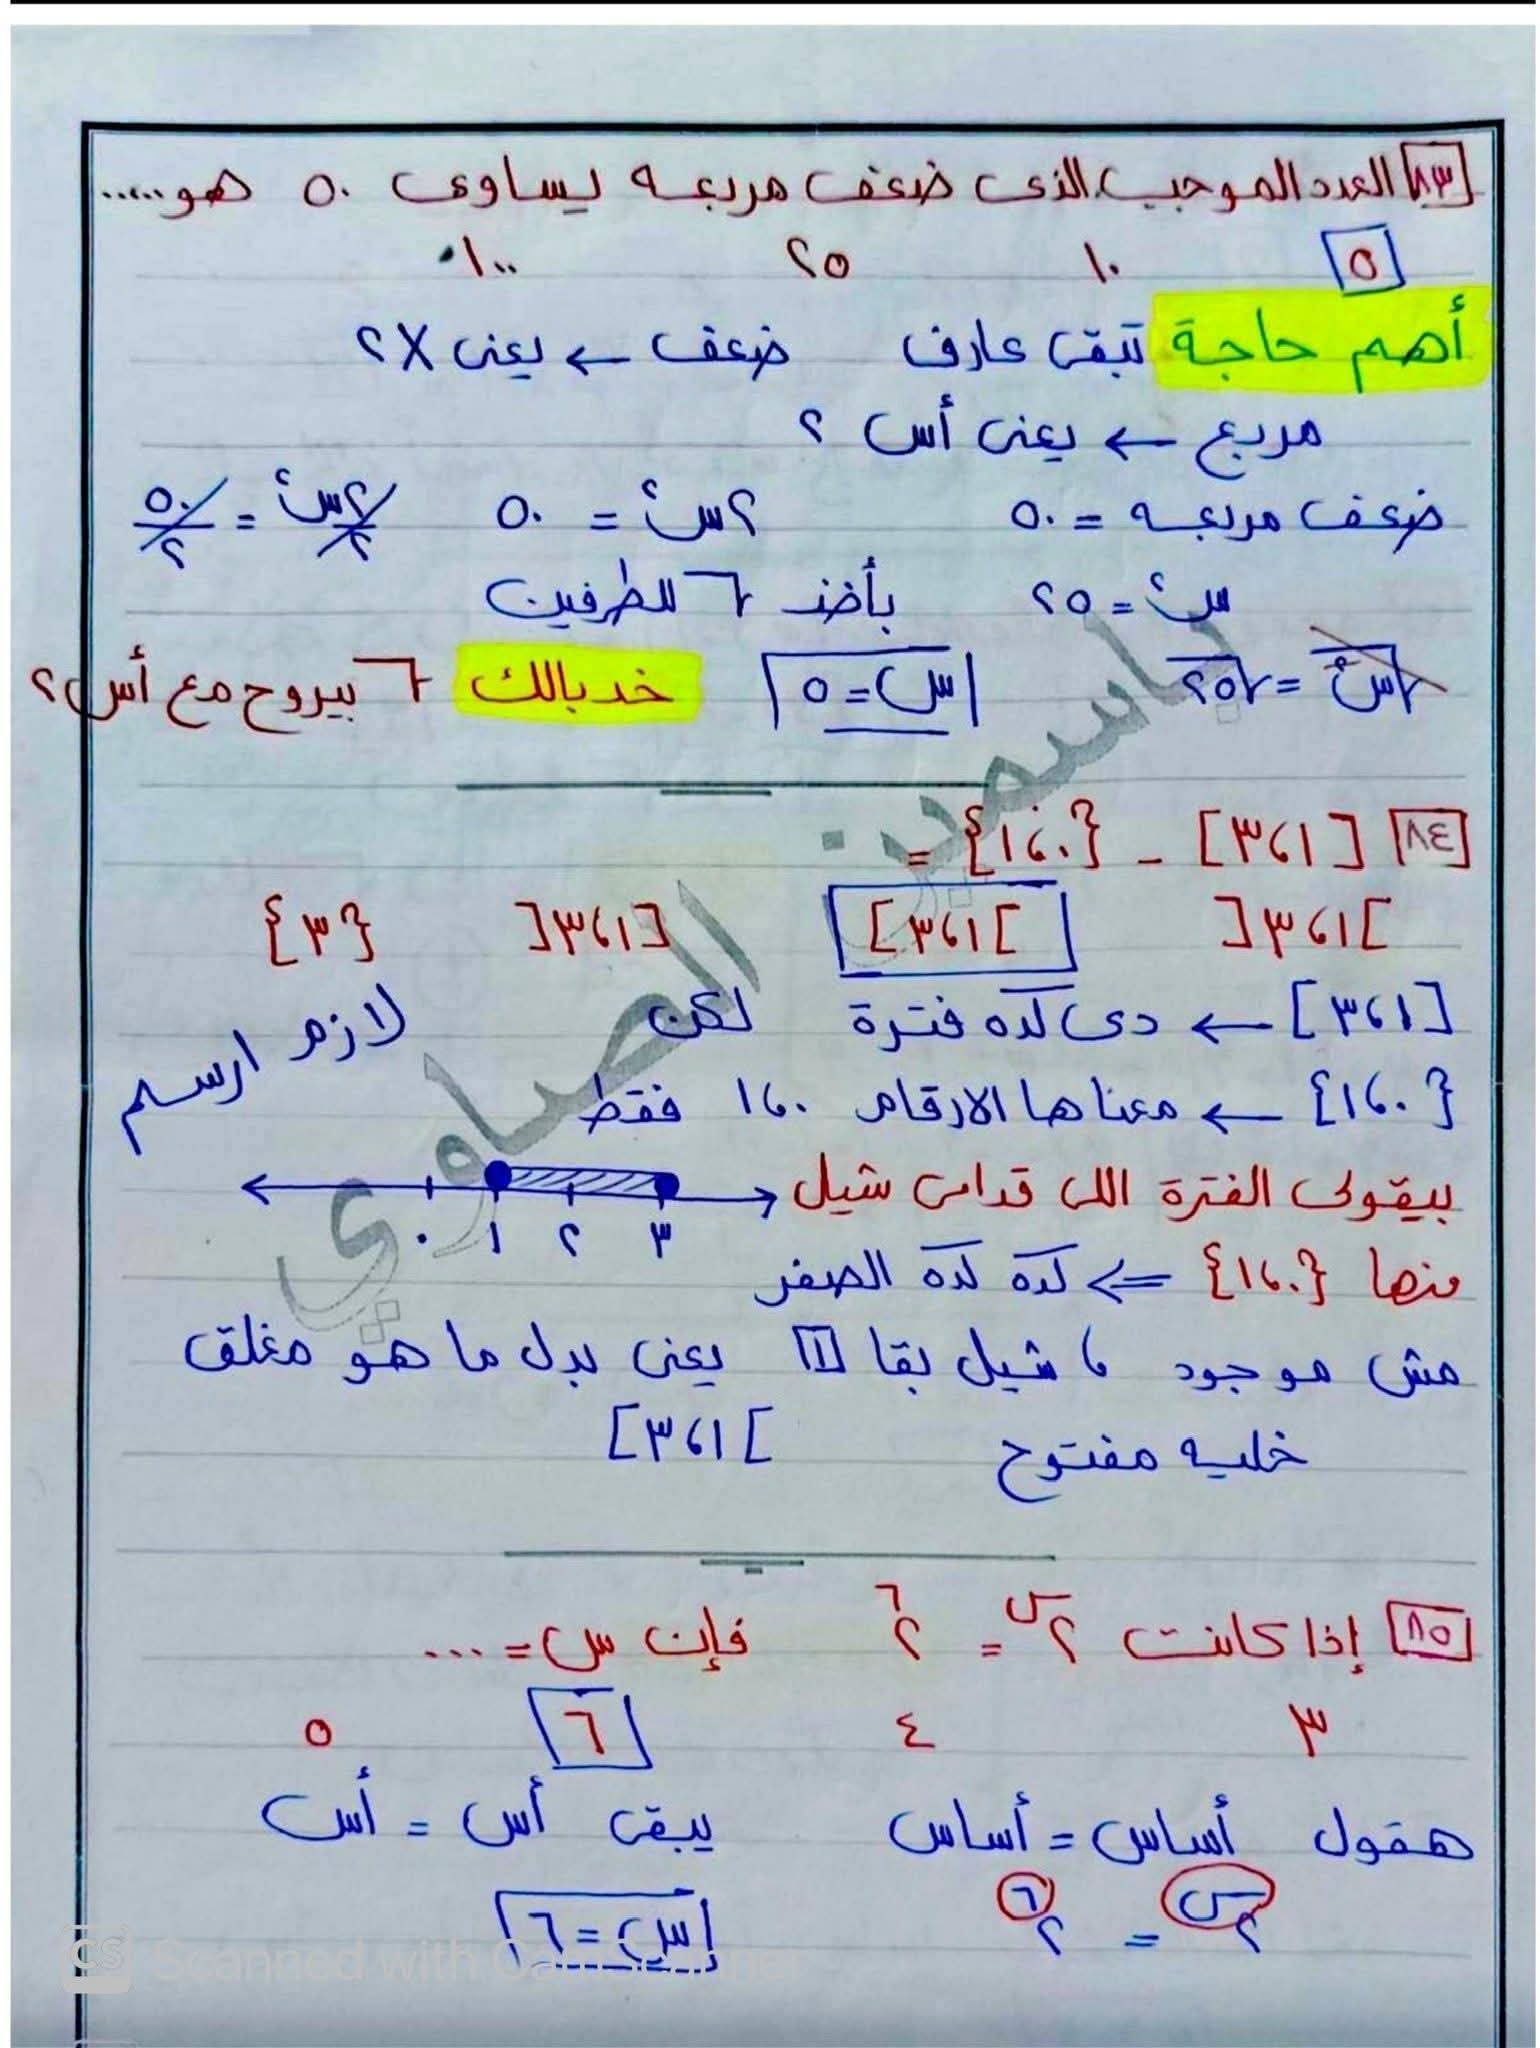 ٨٣ العدد الموجب الذى ضعف مربعه يساوى ٥٠ هو.....
٥ ١٠ ٢٥ ١٠٠
أهم حاجة تبقى عارف ضعف ← يعنى X ٢
مربع ← يعنى أس ٢
ضعف مربعه = ٥٠ ٢س² = ٥٠ ٢س²/٢ = ٥٠/٢
س² = ٢٥ بأخذ √ للطرفين
√س² = √٢٥ س = ٥ خد بالك √ بيروح مع أس ٢
٨٤ [١، ٣] - {٠، ١} =
]١، ٣[ ]١، ٣] [١، ٣[ {٣}
[١، ٣] ← دى كده فترة لكن
{٠، ١} ← معناها الارقام ٠، ١ فقط
لازم ارسم
بيقولى الفترة اللى قدامى شيل
٠ ١ ٢ ٣
منها {٠، ١} ⇐ كده كده الصفر
مش موجود ، شيل بقا ١ يعنى بدل ما هو مغلق
خليه مفتوح ]١، ٣]
٨٥ إذا كانت ٢^س = ٢^٦ فإن س = ...
٣ ٤ ٦ ٥
هقول أساس = أساس يبقى أس = أس
٢^س = ٢^٦ س = ٦
ياسمين الصاوي
CS Scanned with CamScanner